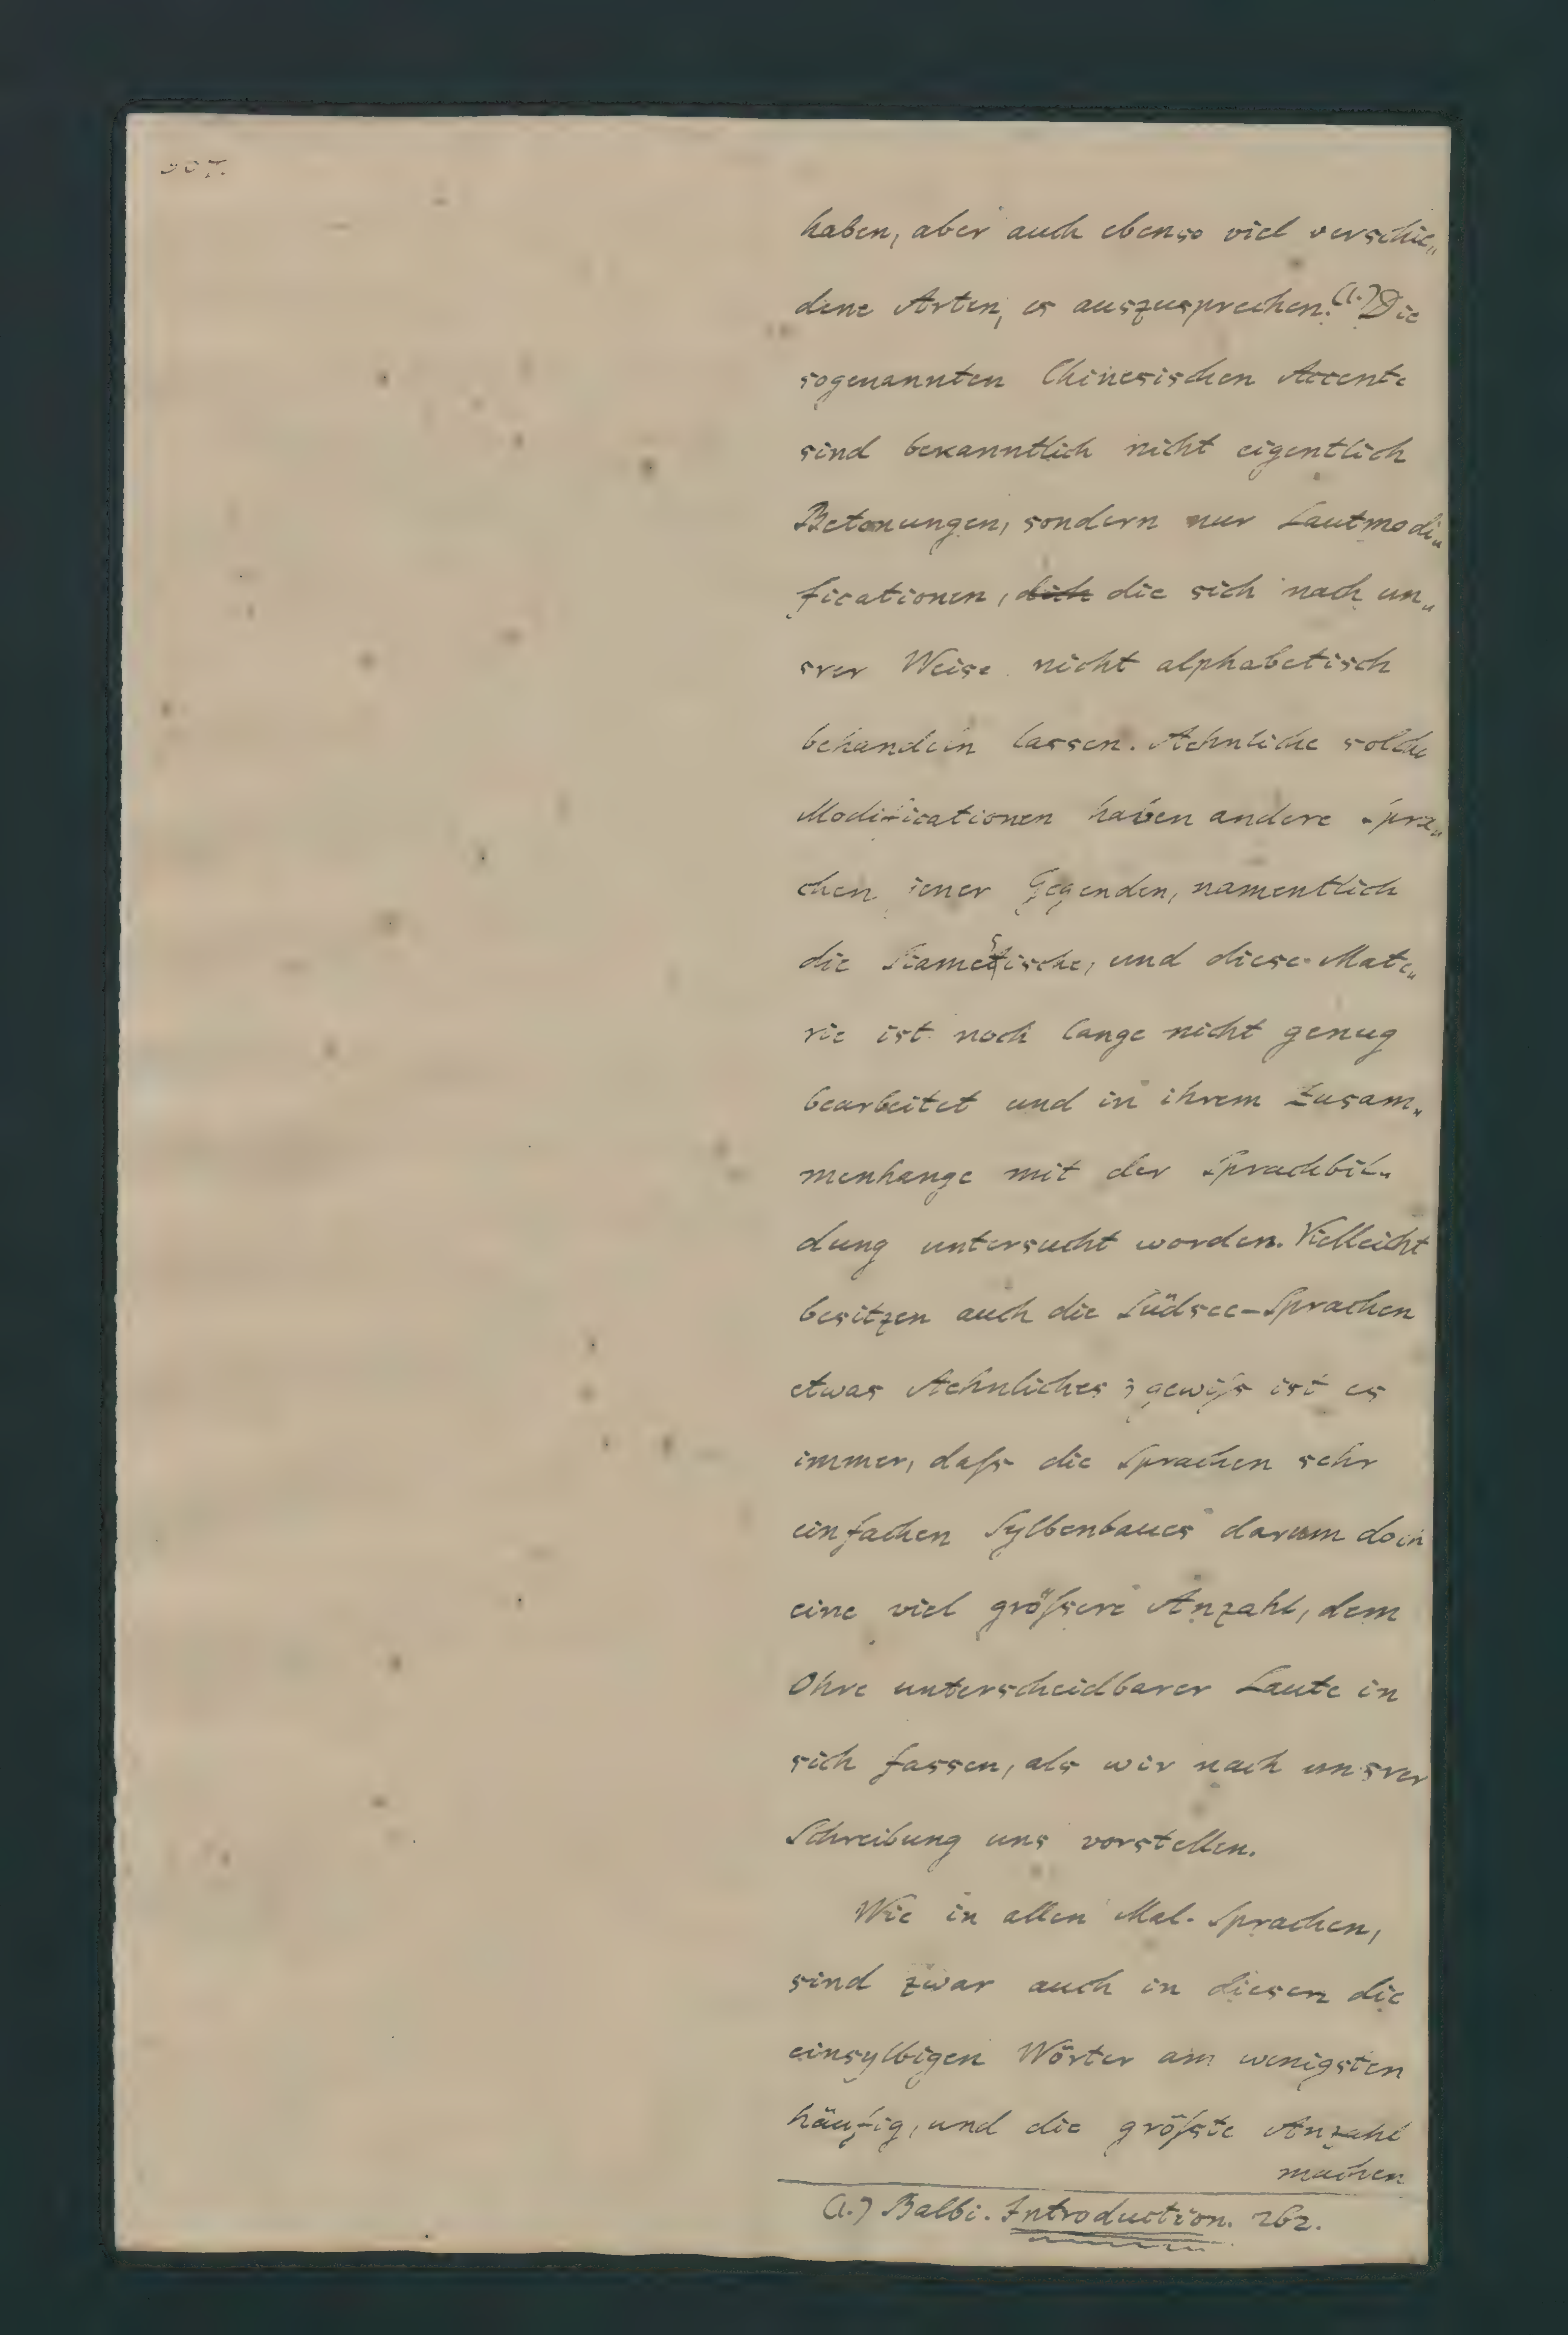 haben, aber auch ebenso viel verschie„
dene Arten, es auszusprechen.(1.) Die
sogenannten Chinesischen Accente
sind bekanntlich nicht eigentlich
Betonungen, sondern nur Lautmodi„
ficationen, dich die sich nach un„
srer Weise nicht alphabetisch
behandeln lassen. Aehnliche solche
Modificationen haben andere Spra„
chen jener Gegenden, namentlich
die Siamesische, und diese Mate„
rie ist noch lange nicht genug
bearbeitet und in ihrem Zusam„
menhange mit der Sprachbil„
dung untersucht worden. Vielleicht
besitzen auch die Südsee-Sprachen
etwas Aehnliches; gewiſs ist es
immer, daſs die Sprachen sehr
einfachen Sylbenbaues darum doch
eine viel gröſsere Anzahl, dem
Ohre unterscheidbarer Laute in
sich fassen, als wir nach unsrer
Schreibung uns vorstellen.
Wie in allen Mal. Sprachen,
sind zwar auch in diesen die
einsylbigen Wörter am wenigsten
häufig, und die gröſste Anzahl
machen
(1.) Balbi. Introduction. 262.